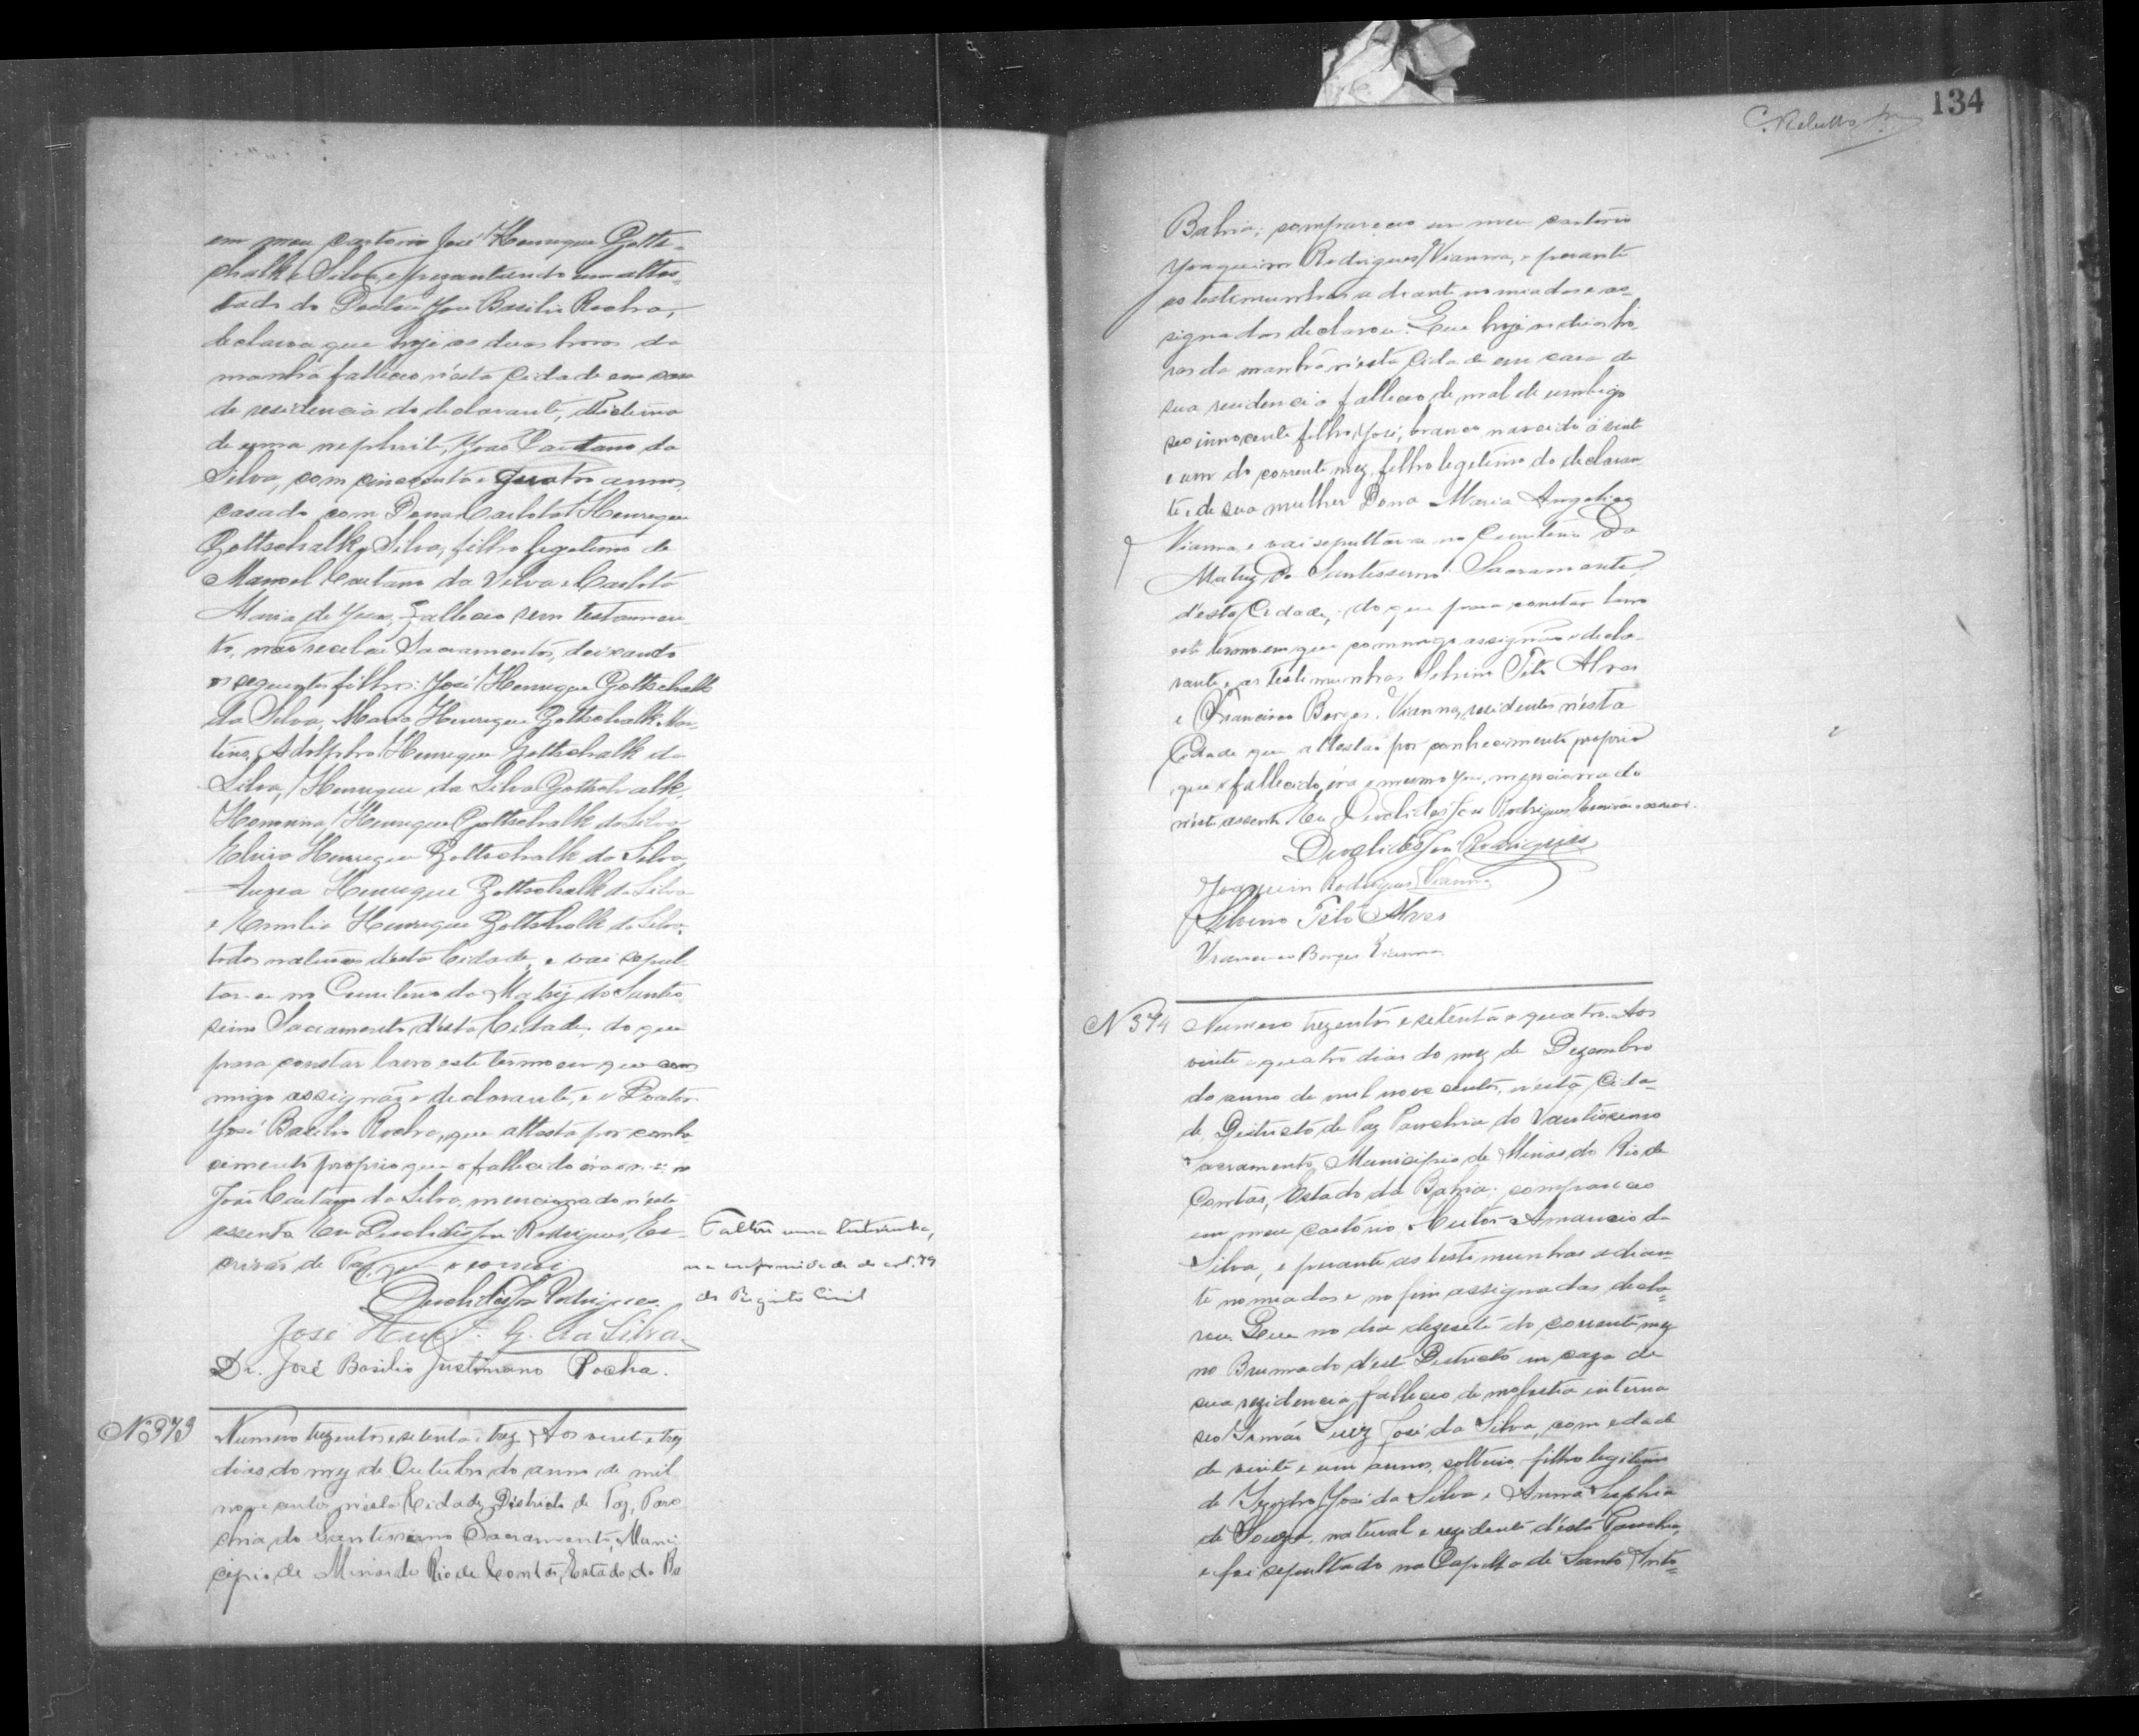 em meu cartorio José Henrique Gotts-
chalk e Silva, e prezentando um attes-
tado do Doutor José Basilio Rocha,
declarou que hoje as duas horas da
manhã falleceo n'esta Cidade em casa
de residencia do declarante, victima
de uma nephrite, João Caetano da
Silva, com cincoenta e quatro annos,
casado com Dona Carlota Henrique
Gottschalk e Silva, filho legitimo de
Manoel Caetano da Silva e Carlota
Maria de Jesus, falleceo sem testamen-
to, não recebeu Sacramentos, deixando
os seguintes filhos: José Henrique Gottschalk
da Silva, Maria Henrique Gottschalk Mar-
tins, Adolpho Henrique Gottschalk da
Silva, Henrique da Silva Gottschalk,
Henrique Gottschalk da Silva
Elvira Henrique Gottschalk da Silva,
Aurea Henrique Gottschalk da Silva
e Emilia Henrique Gottschalk da Silva,
todos naturaes desta Cidade, e vai sepul-
tar-se no Cemiterio da Matriz do Santis-
simo Sacramento d'esta Cidade; do que
para constar lavro este termo em que com-
migo assignão o declarante, e o Doutor
José Basilio Rocha, que attesta por conhe-
cimento proprio que o fallecido éra o mesmo
João Caetano da Silva, mencionado n'este
assento. Eu Euclides José Rodrigues, Es-
crivão de Paz, que o escrevi
Euclides José Rodrigues.
José Henr. G. da Silva
Dr. José Basilio Justiniano Rocha.
Faltou uma testemunha,
na conformidade do art. 79
do Registo Civil
Nº 373
Numero trezentos e setenta e trez. Aos vinte e trez
dias do mez de Outubro do anno de mil
novecentos n'esta Cidade, Districto de Paz, Paro-
chia do Santissimo Sacramento, Muni-
cipio de Minas do Rio de Contas, Estado da Ba
134
Bahia; compareceo em meu cartorio
Joaquim Rodrigues Vianna, e perante
as testemunhas adiante nomiadas e as-
signadas declarou: Que hoje as duas ho-
ras da manhã n'esta Cidade em casa de
sua residencia falleceo de mal de umbigo
seo innocente filho, José, branco nascido á vinte
e um do corrente mez, filho legitimo do declaran-
te, e de sua mulher Dona Maria Angelica
Vianna, e vai sepultar-se no Cemiterio Da
Matriz do Santissimo Sacramento
d'esta Cidade; do que para constar lavro
este termo em que commigo assignão o decla-
rante, e as testemunhas Silvino Tito Alves
e Francisco Borges Vianna, residentes n'esta
Cidade que attestão por conhecimento proprio
que o fallecido, éra o mesmo José, mencionado
n'este assento. Eu Euclides José Rodrigues, Escrivão o escrevi.
Euclides José Rodrigues
Joaquim Rodrigues Vianna
Silvino Tito Alves
Francisco Borges Vianna
Nº 374
Numero trezentos e setenta e quatro. Aos
vinte e quatro dias do mez de Dezembro
do anno de mil novecentos, n'esta Cida-
de, Districto de Paz Parochia do Santissimo
Sacramento, Municipio de Minas do Rio de
Contas, Estado da Bahia; compareceo
em meu cartorio Amancio da
Silva, e perante as testemunhas adian-
te nomiadas e no fim assignadas decla-
rou: Que no dia dezesete do corrente mez
no Brumado d'este Districto em caza de
sua rezidencia falleceo de molestia interna
seo Irmão Luiz José da Silva, com edade
de vinte e um annos, solteiro, filho legitimo
de José da Silva e Anna
de Souza, natural e rezidente d'esta Parochia,
e foi sepultado na Capella de Santo Anto-